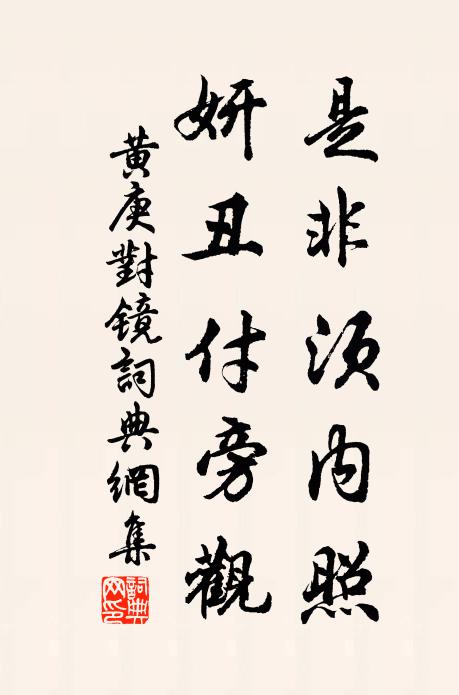 是非须内照
妍丑付旁觀
黄庚對鏡詞典網集
詞典网印